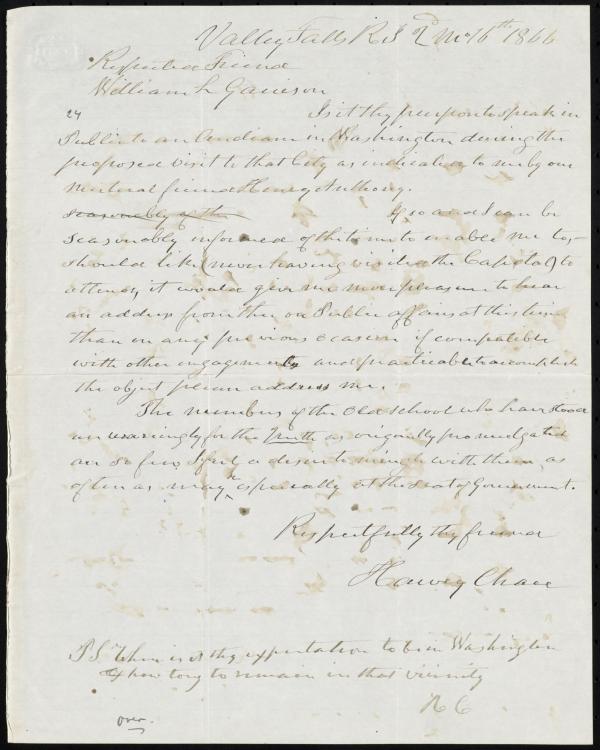 Valley Falls R I 2d mo 16th 1866
Respected Friend
William L Garrison
Is it thy purpose to speak in
Public to an Audiance in Washington during the
proposed visit to that City as indicated to me by our
mutual friend Henry Anthony.
seasonably of the If so and I can be
seasonably informed of the time to enable me to,
should like (never having visited the Capital) to
attend, it would give me more pleasure to hear
an address from thee on Public affairs at this time
than on any previous ocasion if compatible
with other engagements and practicable to accomplish
the object please address me.
The members of the Old School who have stood
unwaveringly for the Truth as origonally promulgated
are so few, I feel a desire to mingle with them as
often as may &c espesially at the Seat of Government.
Respectfully thy friend
Harvey Chace
P.S. When is it thy expectation to be in Washington
& how long to remain in that vicinity
H C
over.
24